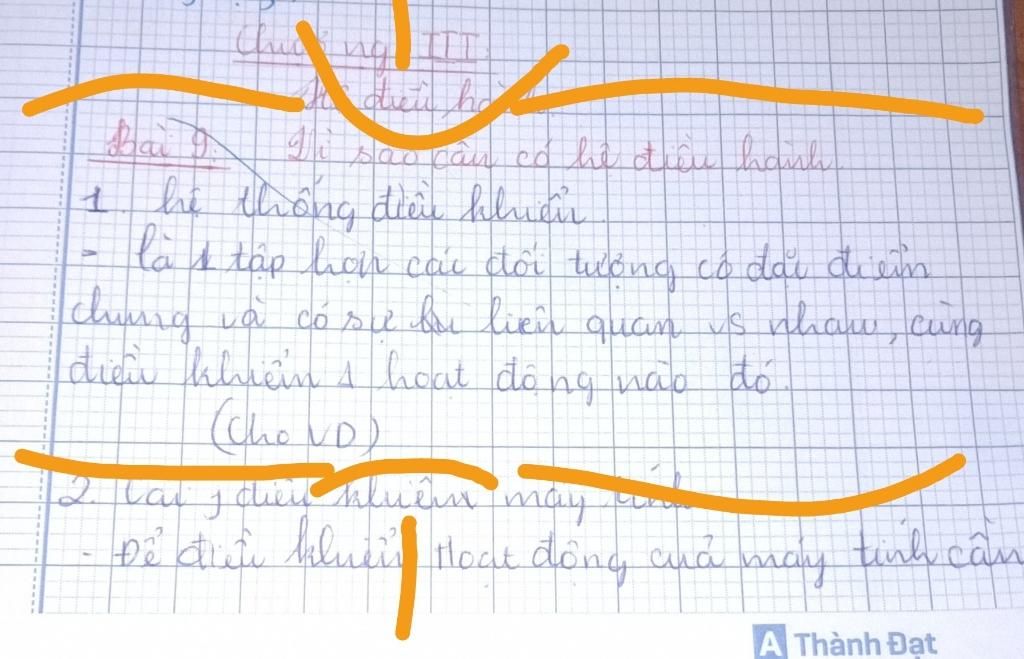 Chương III
Hệ điều hành
Bài 9. Vì sao cần có hệ điều hành
1. hệ thống điều khiển
- là 1 tập hợp các đối tượng có đặc điểm
chung và có sự liên quan vs nhau, cùng
điều khiển 1 hoạt động nào đó.
(Cho VD)
2. điều khiển máy tính
- Để điều khiển Hoạt động của máy tính cần
A Thành Đạt